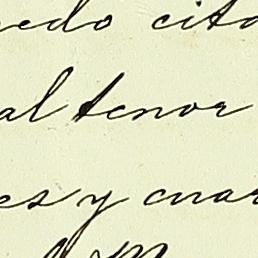 edo cita
al tenor
es y cuar